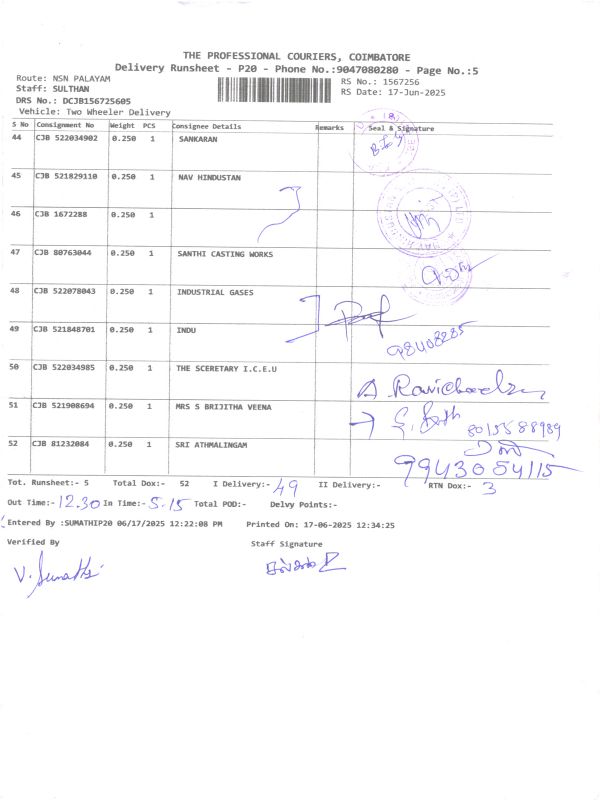 THE PROFESSIONAL COURIERS, COIMBATORE
Delivery Runsheet - P20 - Phone No.:9047080280 - Page No.:5
Route: NSN PALAYAM
RS No.: 1567256
Staff: SULTHAN
RS Date: 17-Jun-2025
DRS No.: DCJB156725605
Vehicle: Two Wheeler Delivery
S No Consignment No Weight PCS Consignee Details Remarks Seal & Signature
44 CJB 522034902 0.250 1 SANKARAN
45 CJB 521829110 0.250 1 NAV HINDUSTAN
46 CJB 1672288 0.250 1
47 CJB 80763044 0.250 1 SANTHI CASTING WORKS
48 CJB 522078043 0.250 1 INDUSTRIAL GASES
49 CJB 521848701 0.250 1 INDU
50 CJB 522034985 0.250 1 THE SCERETARY I.C.E.U
51 CJB 521908694 0.250 1 MRS S BRIJITHA VEENA
8015588989
52 CJB 81232084 0.250 1 SRI ATHMALINGAM
9943054115
Tot. Runsheet:- 5 Total Dox:- 52 I Delivery:- 49 II Delivery:- RTN Dox:- 3
Out Time:- 12.30 In Time:- 5.15 Total POD:- Delvy Points:-
Entered By :SUMATHIP20 06/17/2025 12:22:08 PM Printed On: 17-06-2025 12:34:25
Verified By Staff Signature
V. Sumathi